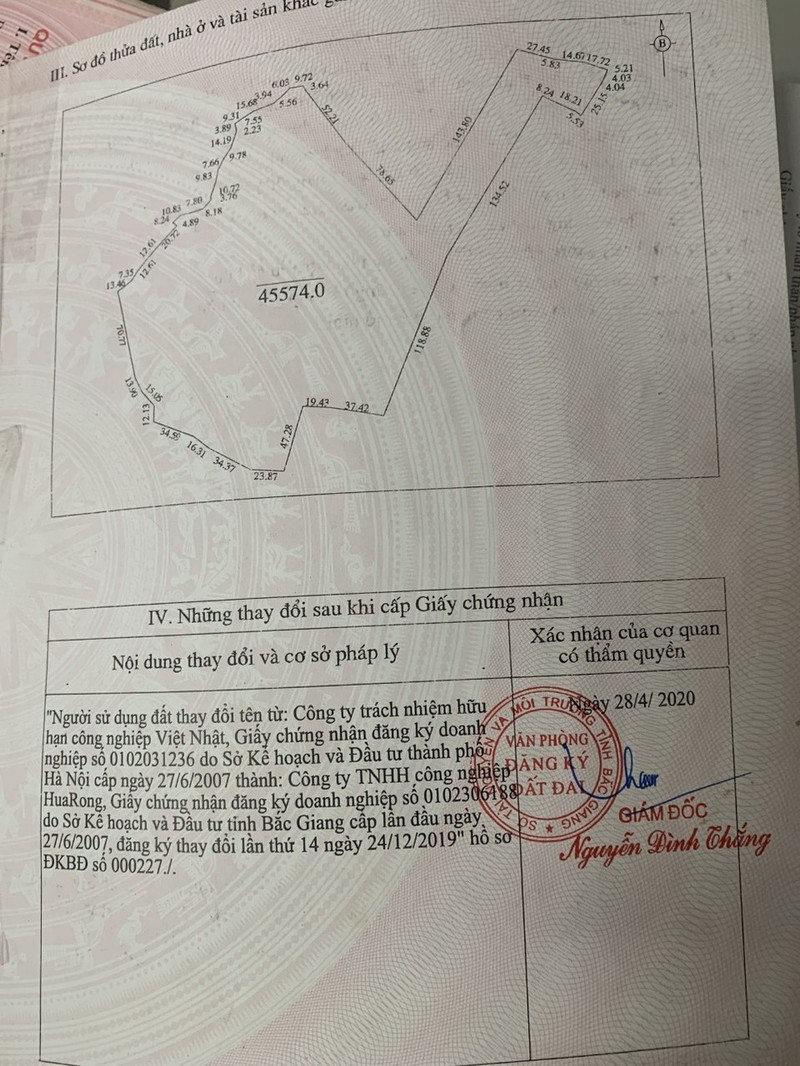 III. Sơ đồ thửa đất, nhà ở và tài sản khác
B
27.45
14.67
17.72
5.83
5.21
4.03
4.04
25.15
8.24
18.21
5.53
6.03
9.72
3.64
3.94
5.56
15.68
9.31
7.55
3.89
2.23
14.19
9.78
7.66
9.83
10.72
3.76
7.80
8.18
10.83
8.24
4.89
20.72
12.61
12.61
7.35
13.46
52.21
78.65
143.80
134.52
45574.0
118.88
70.77
13.90
15.05
12.13
34.59
16.31
34.37
23.87
47.28
19.43
37.42
IV. Những thay đổi sau khi cấp Giấy chứng nhận
Nội dung thay đổi và cơ sở pháp lý
Xác nhận của cơ quan
có thẩm quyền
"Người sử dụng đất thay đổi tên từ: Công ty trách nhiệm hữu
hạn công nghiệp Việt Nhật, Giấy chứng nhận đăng ký doanh
nghiệp số 0102031236 do Sở Kế hoạch và Đầu tư thành phố
Hà Nội cấp ngày 27/6/2007 thành: Công ty TNHH công nghiệp
HuaRong, Giấy chứng nhận đăng ký doanh nghiệp số 0102306188
do Sở Kế hoạch và Đầu tư tỉnh Bắc Giang cấp lần đầu ngày
27/6/2007, đăng ký thay đổi lần thứ 14 ngày 24/12/2019" hồ sơ
ĐKBĐ số 000227./.
Ngày 28/4/ 2020
VĂN PHÒNG
ĐĂNG KÝ
ĐẤT ĐAI
GIÁM ĐỐC
Nguyễn Đình Thắng